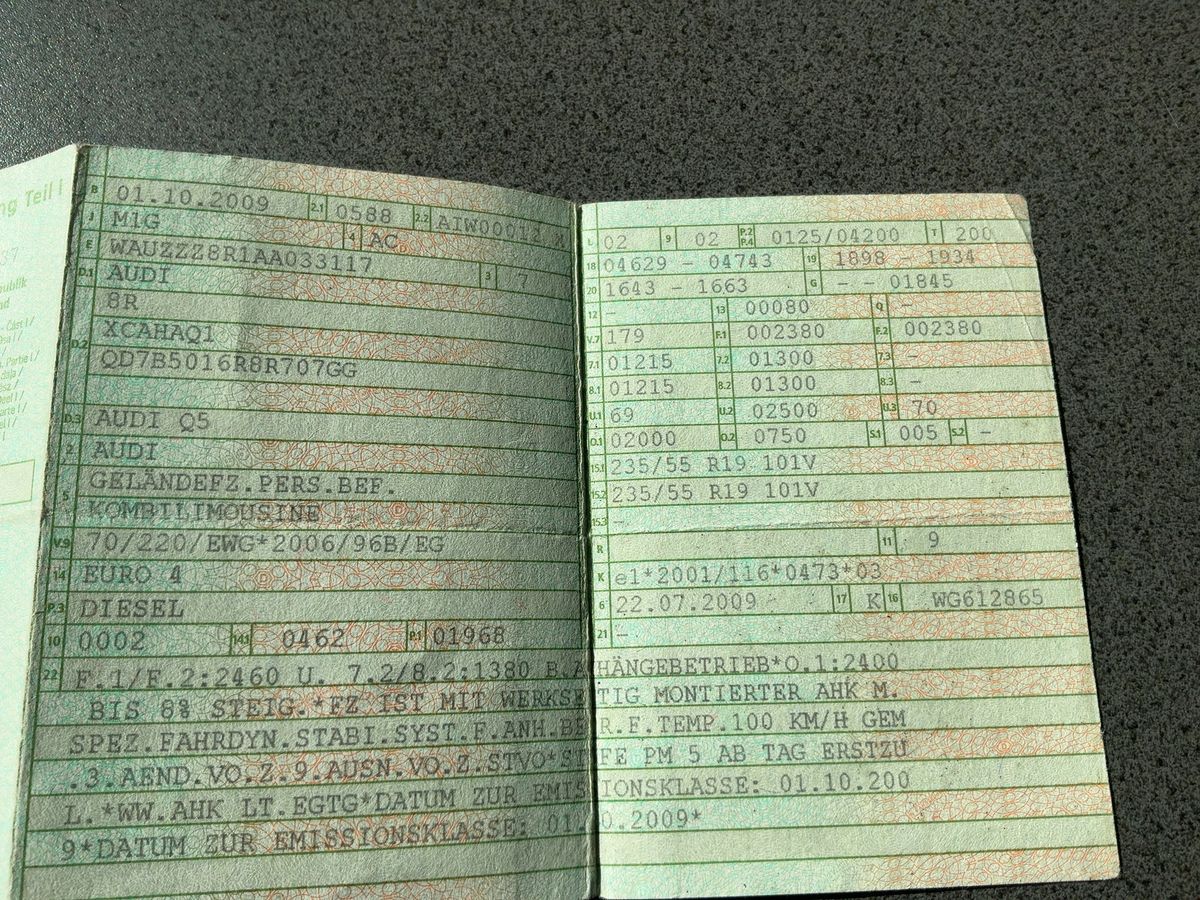 ng Teil I
B 01.10.2009 2.1 0588 2.2 AIW00012
J M1G 4 AC
E WAUZZZ8R1AA033117 3 7
D.1 AUDI
8R
D.2 XCAHAQ1
QD7B5016R8R707GG
D.3 AUDI Q5
2 AUDI
5 GELÄNDEFZ.PERS.BEF.
KOMBILIMOUSINE
V.9 70/220/EWG*2006/96B/EG
14 EURO 4
P.3 DIESEL
10 0002 14.1 0462 P.1 01968
L 02 9 02 P.2 P.4 0125/04200 T 200
18 04629 - 04743 19 1898 - 1934
20 1643 - 1663 G - - 01845
12 - 13 00080 Q -
V.7 179 F.1 002380 F.2 002380
7.1 01215 7.2 01300 7.3 -
8.1 01215 8.2 01300 8.3 -
U.1 69 U.2 02500 U.3 70
O.1 02000 O.2 0750 S.1 005 S.2 -
15.1 235/55 R19 101V
15.2 235/55 R19 101V
15.3 -
R 11 9
K e1*2001/116*0473*03
6 22.07.2009 17 K 16 WG612865
21 -
22 F.1/F.2:2460 U. 7.2/8.2:1380 B.AHÄNGEBETRIEB*O.1:2400
BIS 8% STEIG.*FZ IST MIT WERKSETIG MONTIERTER AHK M.
SPEZ.FAHRDYN.STABI.SYST.F.ANH.BER.F.TEMP.100 KM/H GEM
.3.AEND.VO.Z.9.AUSN.VO.Z.STVO*STFE PM 5 AB TAG ERSTZU
L.*WW.AHK LT.EGTG*DATUM ZUR EMISIONSKLASSE: 01.10.200
9*DATUM ZUR EMISSIONSKLASSE: 010.2009*